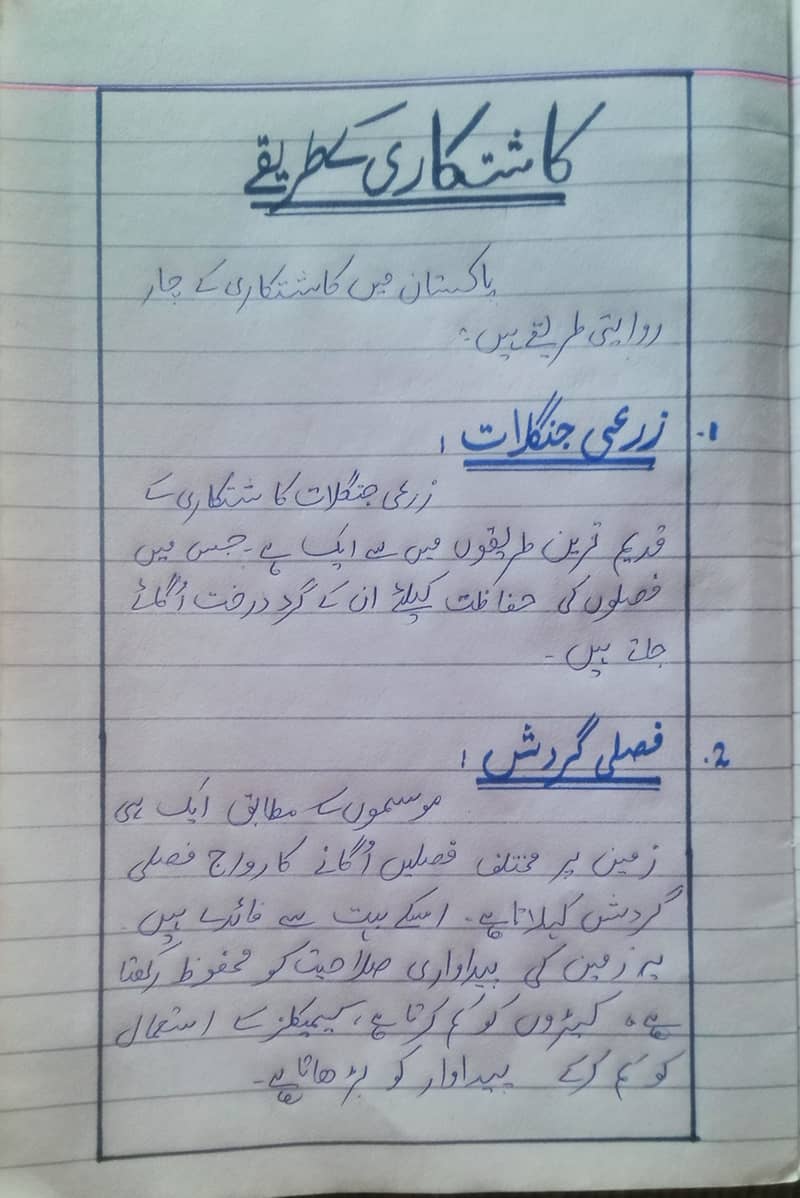 کاشتکاری کے طریقے
پاکستان میں کاشتکاری کے چار
روایتی طریقے ہیں:
1. زرعی جنگلات :
زرعی جنگلات کاشتکاری کے
قدیم ترین طریقوں میں سے ایک ہے۔ جس میں
فصلوں کی حفاظت کیلئے ان کے گرد درخت اُگائے
جاتے ہیں۔
2. فصلی گردش :
موسموں کے مطابق ایک ہی
زمین پر مختلف فصلیں اُگانے کا رواج فصلی
گردش کہلاتا ہے۔ اسکے بہت سے فائدے ہیں۔
یہ زمین کی پیداواری صلاحیت کو محفوظ رکھتا
ہے، کیڑوں کو کم کرتا ہے، کیمیکلز کے استعمال
کو کم کرکے پیداوار کو بڑھاتا ہے۔